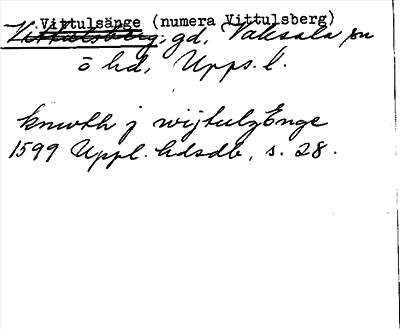 Vittulsänge (numera Vittulsberg)
Vittulsberg, gd, Vaksala sn
ö hd, Upps. l.
knwth j wijtulzEnge
1599 Uppl. hdsdb, s. 28.